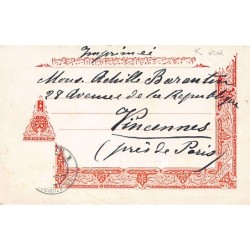 Imprimé
Mons. Achille Barautin
28 Avenue de la République
Vincennes
(près de Paris)